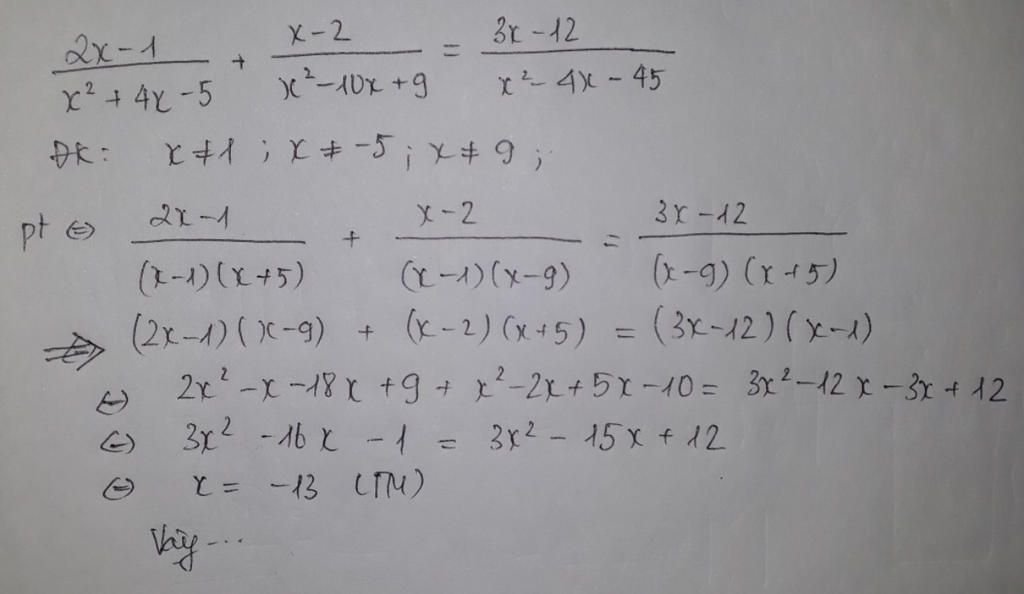 (2x-1)/(x²+4x-5) + (x-2)/(x²-10x+9) = (3x-12)/(x²-4x-45)
ĐK: x≠1 ; x≠-5 ; x≠9 ;
pt ⇔ (2x-1)/((x-1)(x+5)) + (x-2)/((x-1)(x-9)) = (3x-12)/((x-9)(x+5))
⇒ (2x-1)(x-9) + (x-2)(x+5) = (3x-12)(x-1)
⇔ 2x²-x-18x+9+x²-2x+5x-10 = 3x²-12x-3x+12
⇔ 3x²-16x-1 = 3x²-15x+12
⇔ x = -13 (TM)
Vậy...